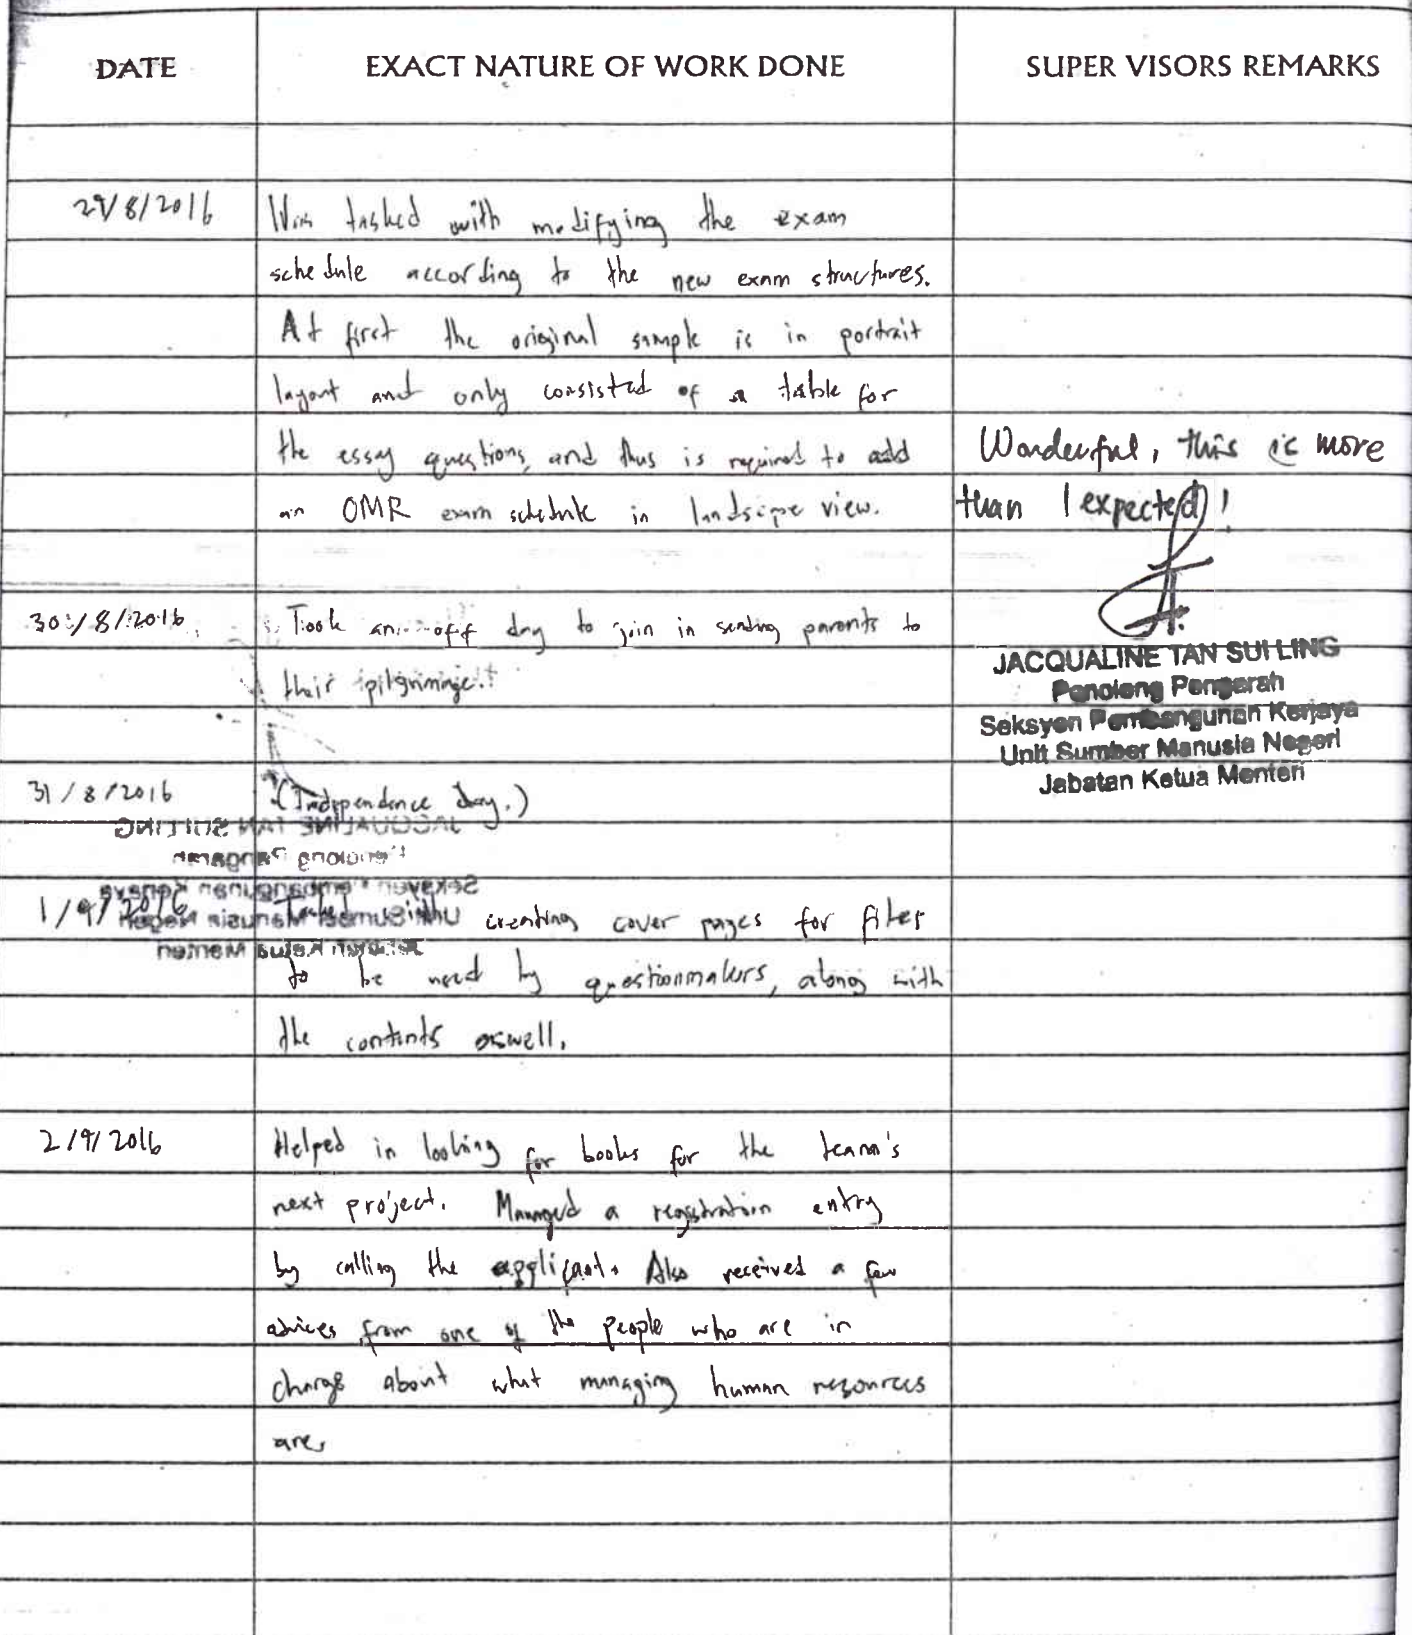 DATE EXACT NATURE OF WORK DONE SUPER VISORS REMARKS
29/8/2016 Was tasked with modifying the exam
schedule according to the new exam structures.
At first the original sample is in portrait
layout and only consisted of a table for
the essay questions, and thus is required to add
an OMR exam schedule in landscape view.
Wonderful, this is more
than I expected!
30/8/2016 Took an off day to join in sending parents to
their pilgrimage.
JACQUALINE TAN SUI LING
Penolong Pengarah
Seksyen Pembangunan Kerjaya
Unit Sumber Manusia Negeri
Jabatan Ketua Menteri
31/8/2016 (Independence day.)
1/9/2016 Tasked with creating cover pages for files
to be used by questionmakers, along with
the contents aswell.
2/9/2016 Helped in looking for books for the team's
next project. Managed a registration entry
by calling the applicant. Also received a few
advices from one of the people who are in
charge about what managing human resources
are.